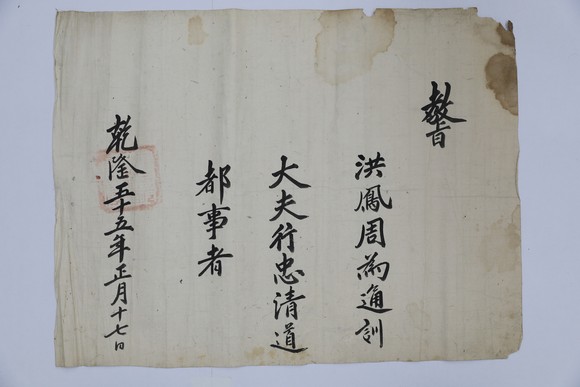 教旨
洪鳳周爲通訓
大夫行忠清道
都事者
乾隆五十五年正月十七日